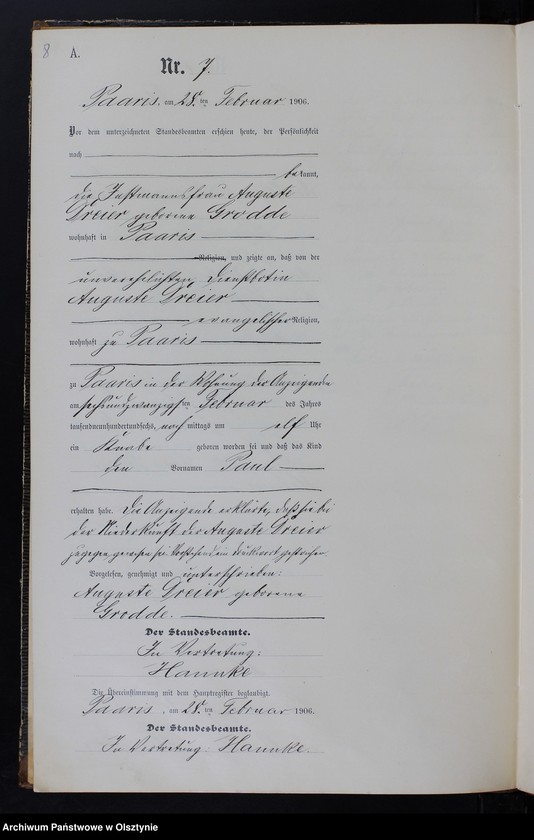 8
A.
Nr. 7.
Paaris, am 28ten Februar 1906.
Vor dem unterzeichneten Standesbeamten erschien heute, der Persönlichkeit
nach
bekannt,
die Instmannsfrau Auguste
Dreier geborene Grodde
wohnhaft in Paaris
Religion, und zeigte an, daß von der
unverehelichten Dienstbotin
Auguste Dreier
evangelischer Religion,
wohnhaft zu Paaris
zu Paaris in der Wohnung der Anzeigenden
am sechsundzwanzigsten Februar des Jahres
tausendneunhundertundsechs, nachmittags um elf Uhr
ein Knabe geboren worden sei und daß das Kind
den Vornamen Paul
erhalten habe. Die Anzeigende erklärte, daß sie bei
der Niederkunft der Auguste Dreier
zugegen gewesen sei. Vorstehend ein Druckwort gestrichen.
Vorgelesen, genehmigt und unterschrieben:
Auguste Dreier geborene
Grodde.
Der Standesbeamte.
In Vertretung:
Hannke
Die Übereinstimmung mit dem Hauptregister beglaubigt.
Paaris, am 28ten Februar 1906.
Der Standesbeamte.
In Vertretung: Hannke.
Archiwum Państwowe w Olsztynie